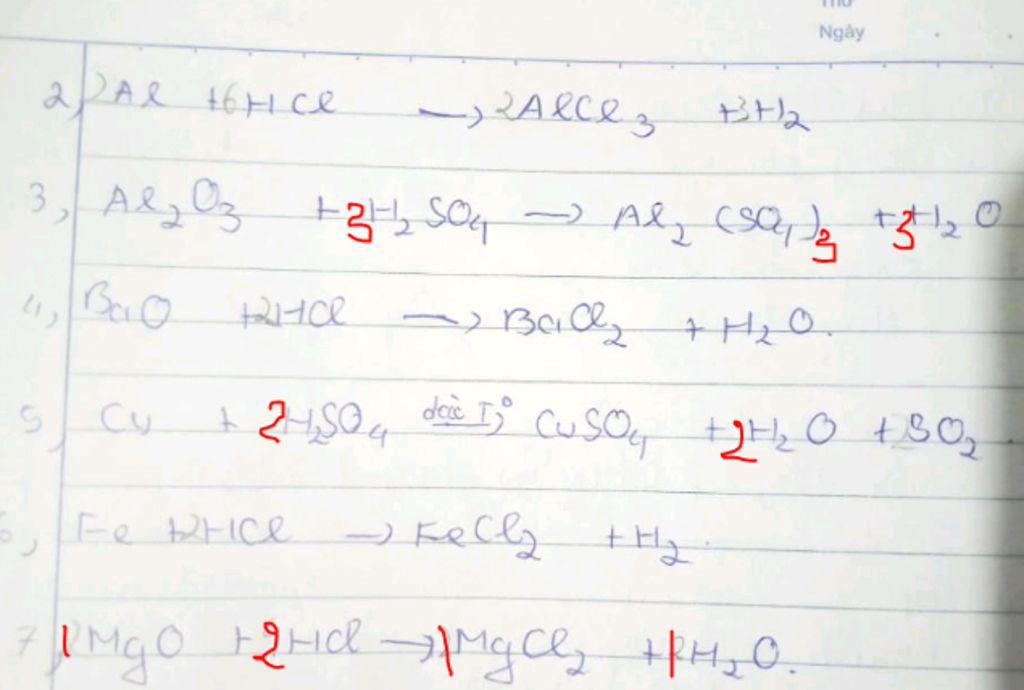 Thứ
Ngày
2, 2Al +6HCl → 2AlCl₃ +3H₂
3, Al₂O₃ +3H₂SO₄ → Al₂(SO₄)₃ +3H₂O
4, BaO +2HCl → BaCl₂ + H₂O.
5, Cu + 2H₂SO₄ đặc T,° CuSO₄ +2H₂O + SO₂.
6, Fe +2HCl → FeCl₂ + H₂.
7 1MgO +2HCl → 1MgCl₂ +1H₂O.